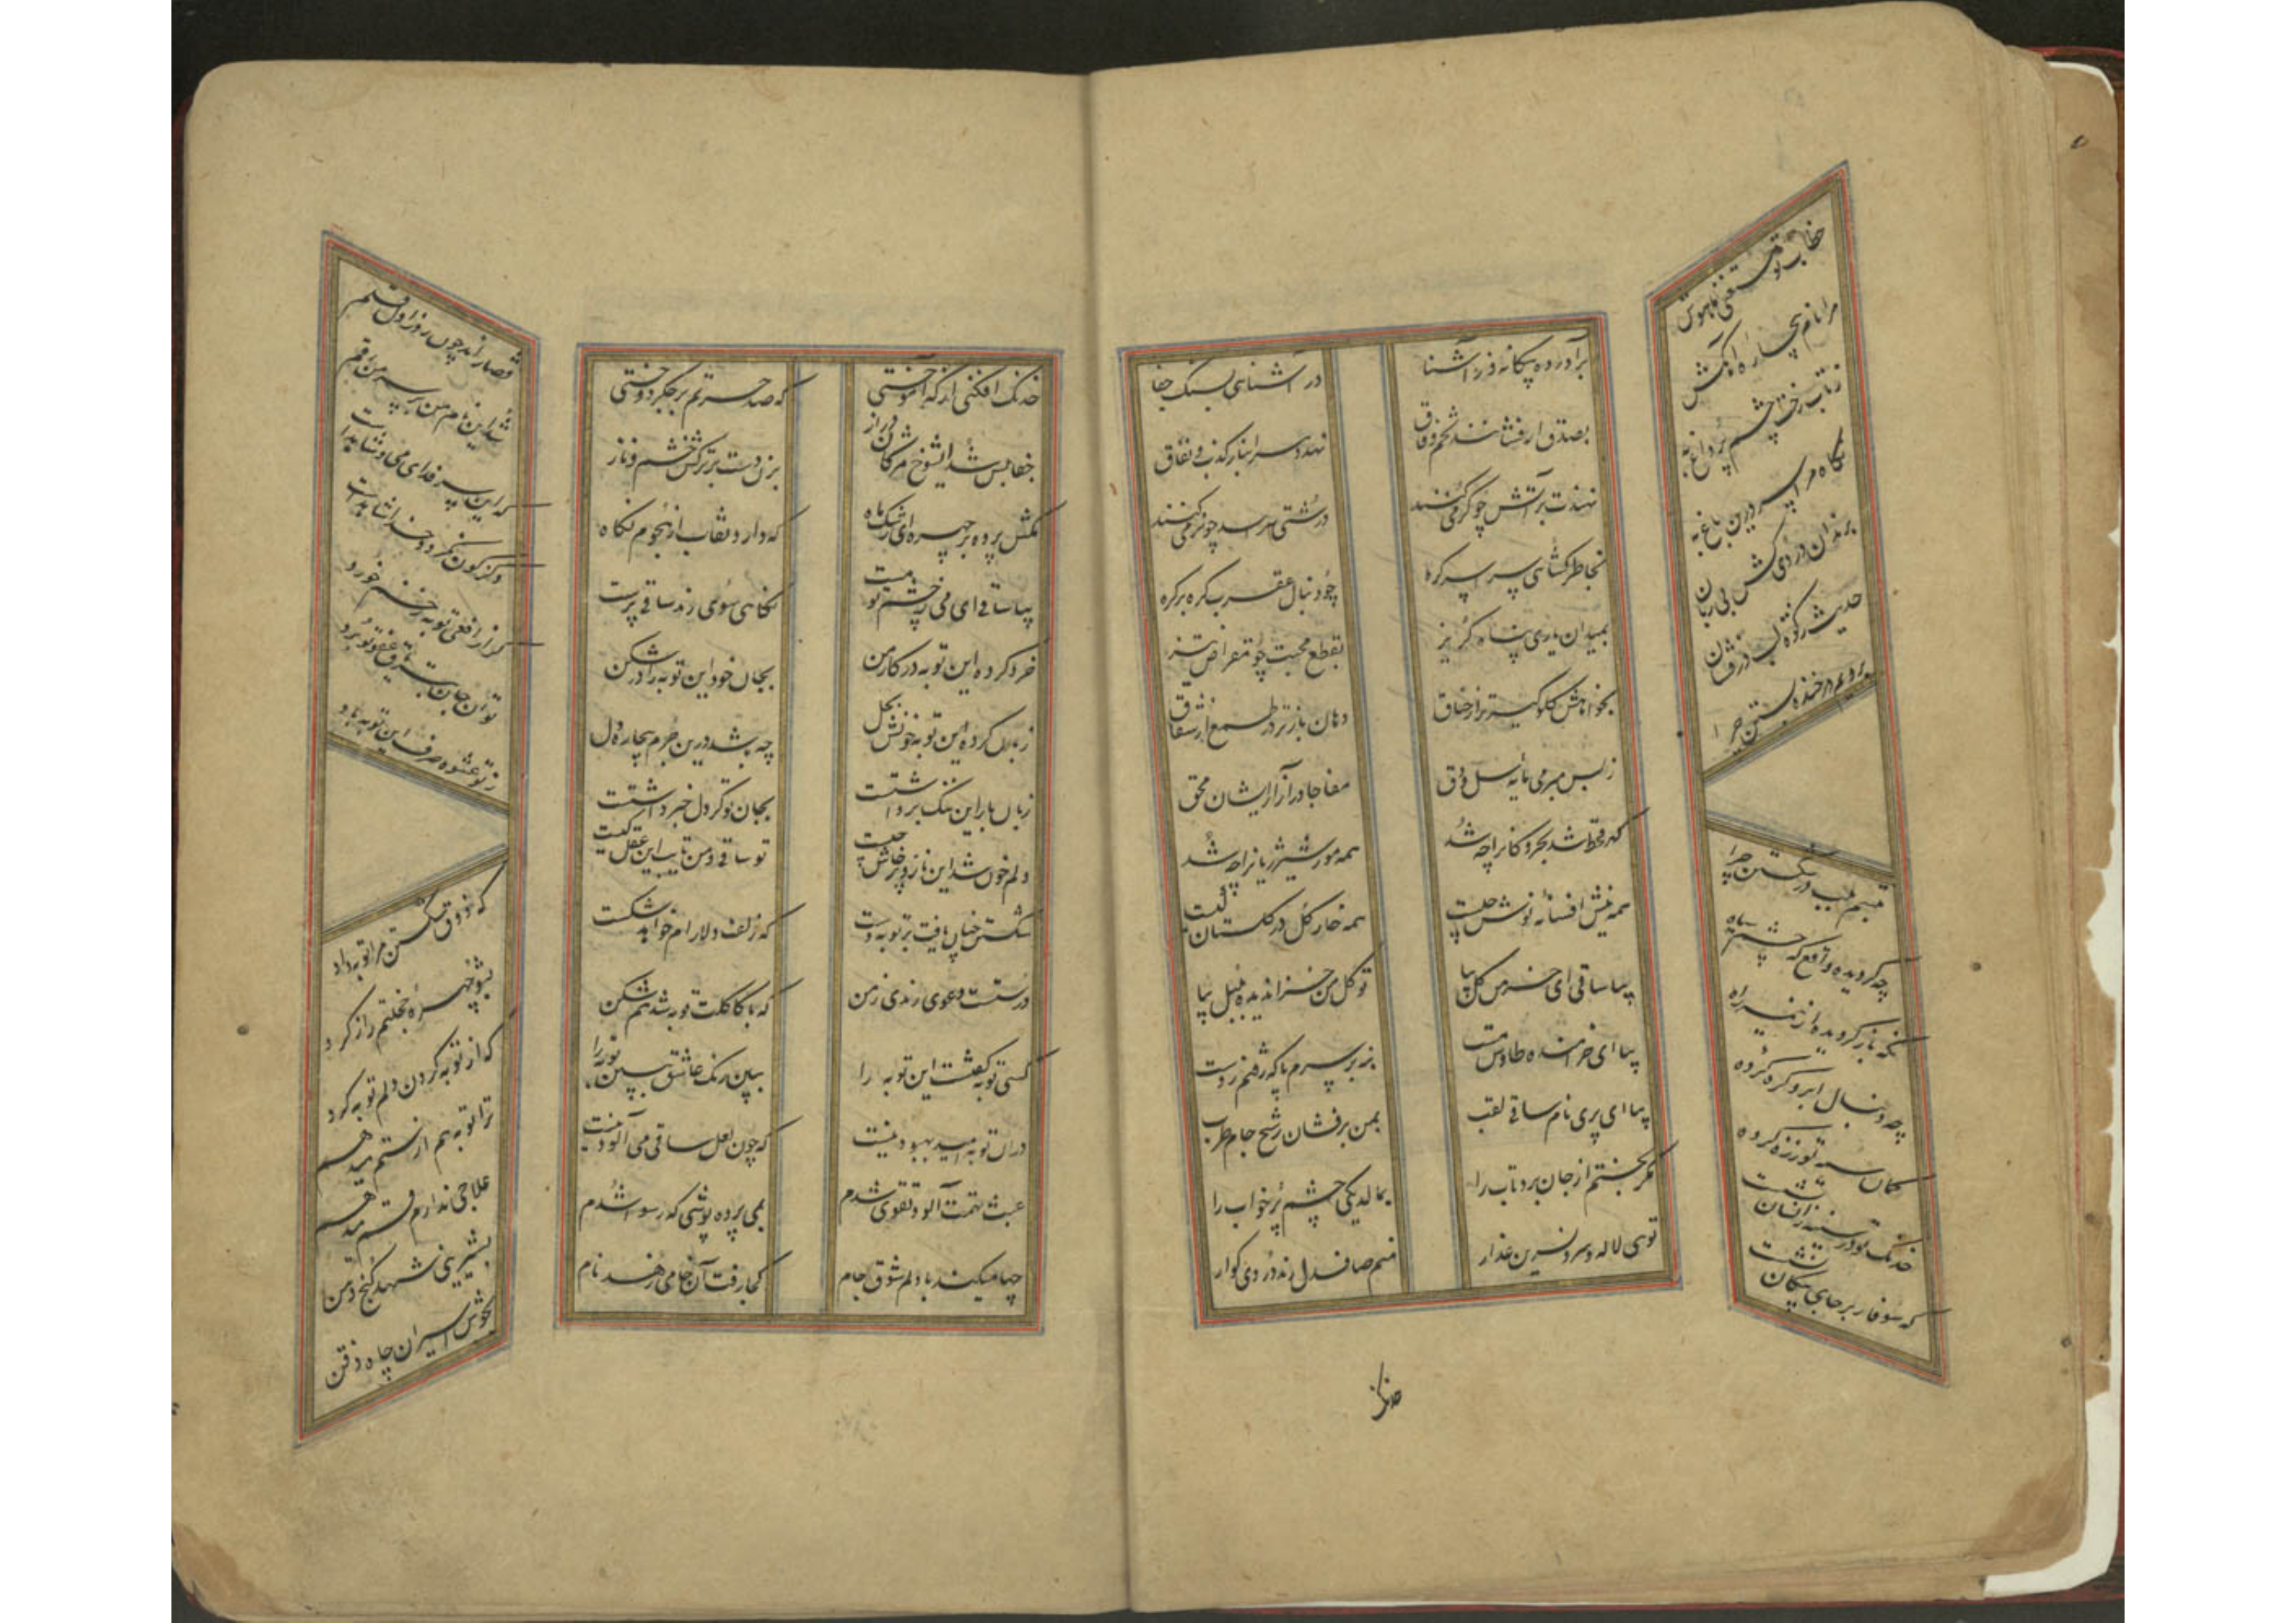 برآورده بیگانه فر آشنا
در آشنای بسنگ جفا
بصدق ار فشانند تخم وفاق
نهد دسر انبار کذب و نفاق
نهندت بر آتش چو گرمی کنند
درشتی رسد چو نرمی کنند
بخاطر کشای پر اسر گره
چو دنبال عقرب گره بر گره
بمیدان یاری پناه گریز
بقطع محبت چو مقراض تیز
بخوانامش گلوگیرتر از خناق
دهان بازتر در طمع از شقاق
ز بس مبرمی مایه سل و دق
مفاجا در آزار ایشان محق
گهر قحط شد بحر و کانرا چه شد
همه مور شیر ژیانرا چه شد
همه نیش افسانه نوش چیست
همه خار گل در گلستان کیست
بیا ساقی ای خرمن گل بیا
تو گل من خزاندیده بلبل بیا
بیا ای خرامنده طاوس مست
بزبر سرم پا که رفتم ز دست
بیا ای پری نام ساقی لقب
بمن برفشان رشح جام طرب
مگر بختم از جان برد تاب را
بمالد یکی چشم پرخواب را
توی لاله و سرو نسرین عذار
منم صاف‌دل رند دردی گوار
خطاب تو مستغنی ناموش
مرا نام بیچاره او کش
ز تاب رخت چشم پر داغ به
نگاه مرا سیر درین باغ به
برندان دردی کش بی زبان
حدیث ز گوشه لب درفشان
برویم در خنده بستن چرا
تبسم بلب در شکستن چرا
چه کردیده واقع که چشم سیاه
نگه باز گردیده از نیم راه
چه دنبال ابرو گره کرده
کمان سیه توز زه کرده
خدنگ تو در سینه زانسان نشست
که سوفار بر جای پیکان نشست
خدنگ
خدنگ افکنی از که آموختی
که صد حسرتم بر جگر دوختی
جفا بس شد ایشوخ مژگان دراز
بزن دست بر ترکش خشم و ناز
بکش پرده بر چهره ای رشک ماه
که دارد نقاب از هجوم نگاه
بیا ساقی ای می ز چشم تو مست
نگاهی سوی رند ساقی پرست
خرد کرده این توبه در کار من
بجان خود این توبه را در شکن
زبان کرده این توبه خونش بحل
چه باشد درین جرم بیچاره دل
زبان بار این ننگ برداشتست
بجان تو گر دل خبر داشتست
دلم خون شد این ناز و پرخاش چیست
تو ساقی و من تایب این عقل کیست
شکستن چنان یافت بر توبه دست
که زلف دلارام خواهد شکست
درستست دعوی رندی ز من
که با کاکلت توبه شد هم‌شکن
کسی توبه کفتست این توبه را
ببین رنگ عاشق ببین توبه را
در ان توبه امید بهبود نیست
که چون لعل ساقی می آلود نیست
عبث تهمت آلود تقوی شدم
بمی پرده پوشی که رسوا شدم
چها میکند با دلم شوق جام
کجا رفت آن جامی زهد نام
قضا راند چون روز اول قلم
شد این نام من بر سر من رقم
که این سر فدای می و شاهد است
دگرگون نگردد خدا شاهد است
گر از افعی توبه زخم خورد
توان جان بتریاق عفو تو برد
ز تو عشوه صرف این توبه باد
که ذوق شکستن مرا توبه داد
بشو چهره خجلتم را ز گرد
که از توبه کردن دلم توبه کرد
ترا توبه هم از ستم میدهم
علاجی ندارم قسم میدهم
بشیرینی شهد کنج دهن
بخوش اسیران چاه ذقن